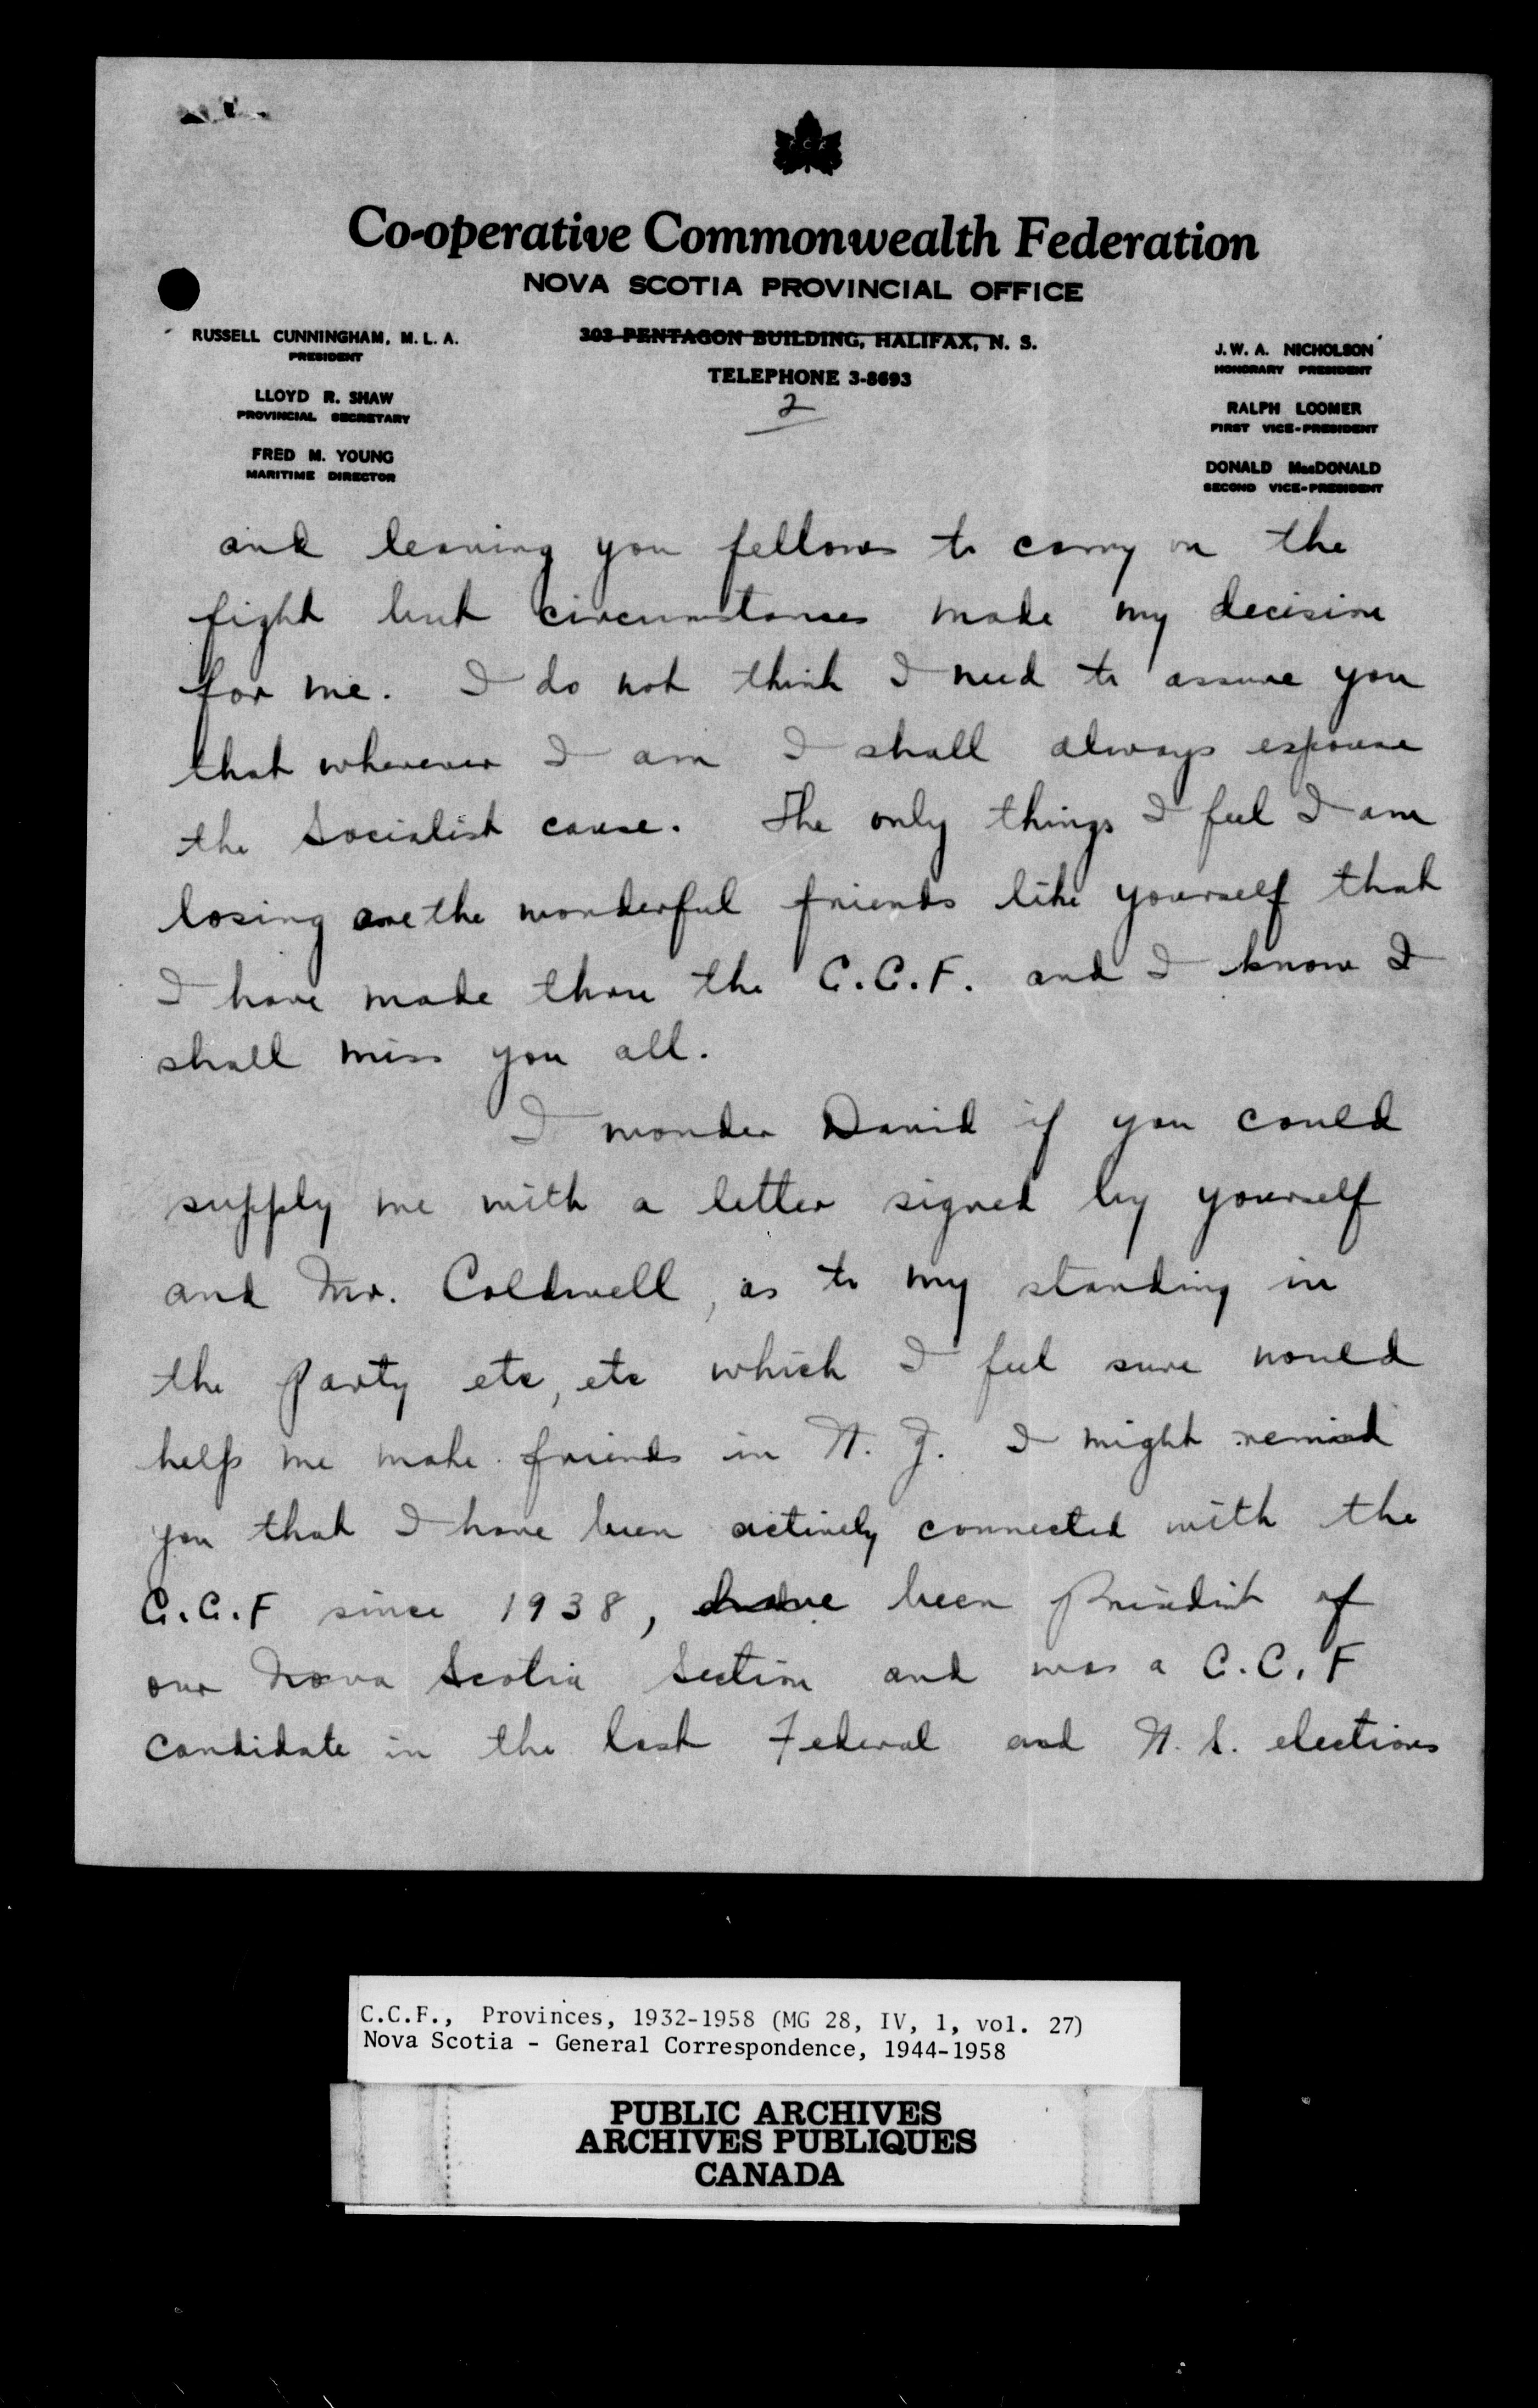 Co-operative Commonwealth Federation
NOVA SCOTIA PROVINCIAL OFFICE
303 PENTAGON BUILDING, HALIFAX, N. S.
TELEPHONE 3-8693
RUSSELL CUNNINGHAM, M. L. A.
PRESIDENT
LLOYD R. SHAW
PROVINCIAL SECRETARY
FRED M. YOUNG
MARITIME DIRECTOR
J. W. A. NICHOLSON
HONORARY PRESIDENT
RALPH LOOMER
FIRST VICE-PRESIDENT
DONALD MacDONALD
SECOND VICE-PRESIDENT
2
and leaving you fellows to carry on the
fight but circumstances made my decision
for me. I do not think I need to assure you
that wherever I am I shall always espouse
the Socialist cause. The only things I feel I am
losing are the wonderful friends like yourself that
I have made thru the C.C.F. and I know I
shall miss you all.
I wonder David if you could
supply me with a letter signed by yourself
and Mr. Coldwell, as to my standing in
the Party etc, etc which I feel sure would
help me make friends in N. J. I might remind
you that I have been actively connected with the
C.C.F since 1938, have been President of
our Nova Scotia Section and was a C.C.F
candidate in the last Federal and N.S. elections
C.C.F., Provinces, 1932-1958 (MG 28, IV, 1, vol. 27)
Nova Scotia - General Correspondence, 1944-1958
PUBLIC ARCHIVES
ARCHIVES PUBLIQUES
CANADA